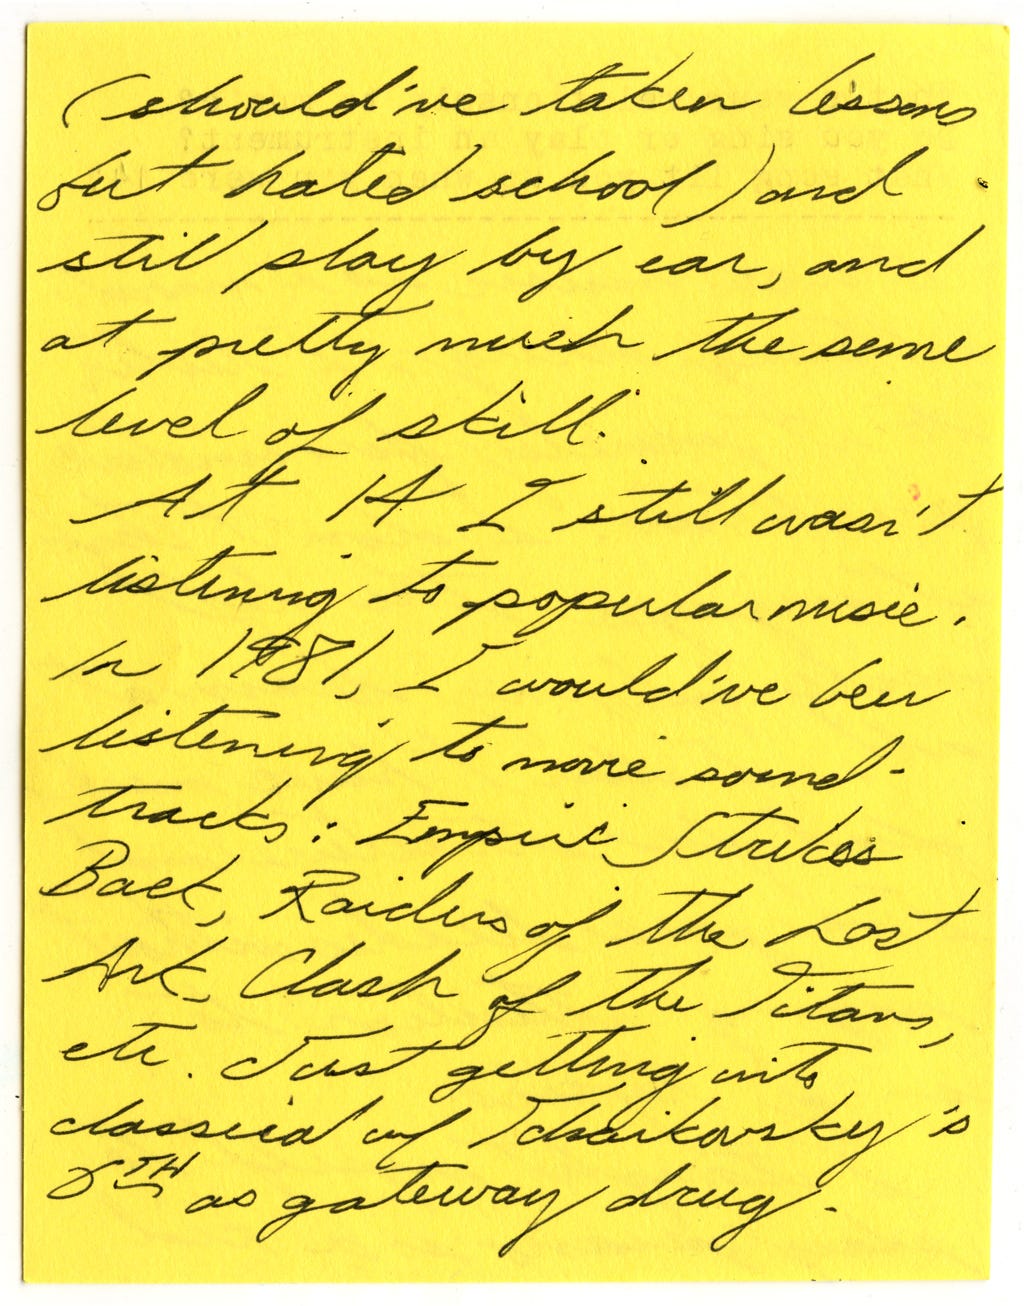 (should've taken lessons
but hated school) and
still play by ear, and
at pretty much the same
level of skill.
At 14 I still wasn't
listening to popular music.
In 1981, I would've been
listening to movie sound-
tracks: Empire Strikes
Back, Raiders of the Lost
Ark, Clash of the Titans,
etc. Just getting into
classical w/ Tchaikovsky's
6TH as gateway drug.